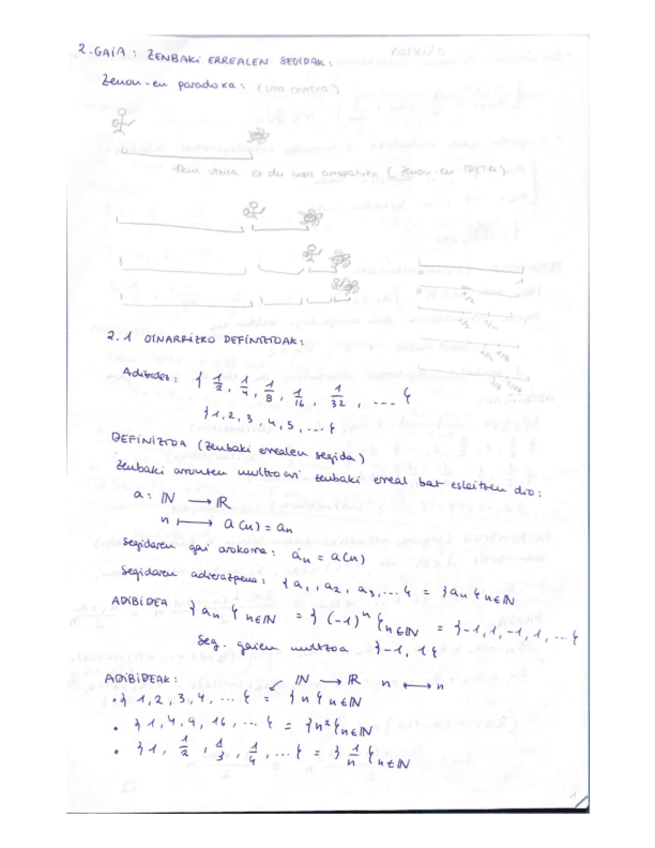 2. GAIA : ZENBAKI ERREALEN SEGIDAK :
Zenon-en paradoxa : (una carrera)
Ikus utsita ez du inoiz arrapatuko (Zenon-en IDEIA)
1
1/2
1/4 1/8
1/8 1/16
2.1 OINARRIZKO DEFINIZIOAK :
Adibidez : { 1/2, 1/4, 1/8, 1/16, 1/32, ... }
{1, 2, 3, 4, 5, ... }
DEFINIZIOA (Zenbaki errealen segida)
Zenbaki arrunten multzoari zenbaki erreal bat esleitzen dio :
a : ℕ → ℝ
n ↦ a(n) = an
Segidaren gai orokorra : an = a(n)
Segidaren adierazpena : {a1, a2, a3, ... } = {an}n∈ℕ
ADIBIDEA {an}n∈ℕ = {(-1)^n}n∈ℕ = {-1, 1, -1, 1, ... }
Seg. gaien multzoa {-1, 1}
ADIBIDEAK : ℕ → ℝ n ↦ n
• {1, 2, 3, 4, ... } = {n}n∈ℕ
• {1, 4, 9, 16, ... } = {n²}n∈ℕ
• {1, 1/2, 1/3, 1/4, ... } = {1/n}n∈ℕ
1